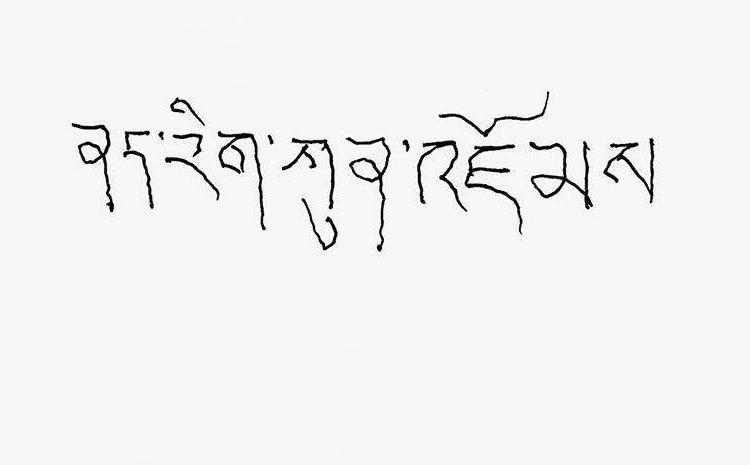 ནད་རིག་ཀུན་འཇོམས